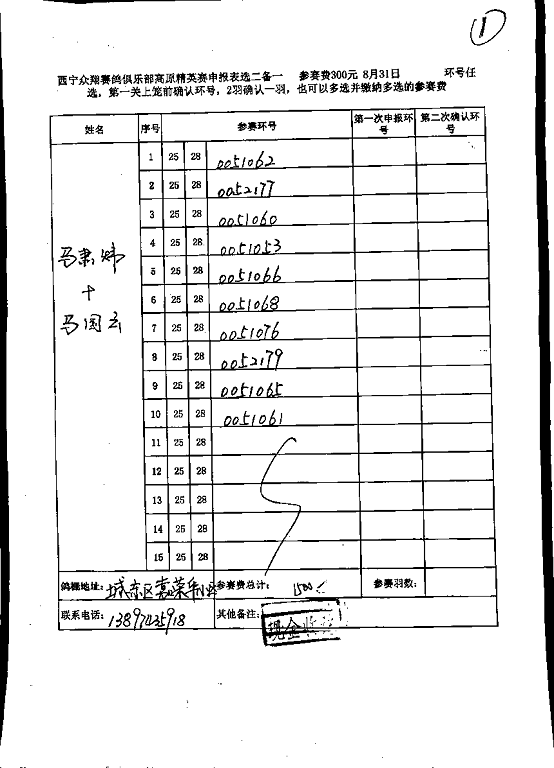 1
西宁众翔赛鸽俱乐部高原精英赛申报表选二备一 参赛费300元 8月31日 环号任
选，第一关上笼前确认环号，2羽确认一羽，也可以多选并缴纳多选的参赛费
姓名 序号 参赛环号 第一次申报环号 第二次确认环号
马肃炜
+
马国云
1 25 28 0051062
2 25 28 0052177
3 25 28 0051060
4 25 28 0051053
5 25 28 0051066
6 25 28 0051068
7 25 28 0051076
8 25 28 0052179
9 25 28 0051065
10 25 28 0051061
11 25 28
12 25 28
13 25 28
14 25 28
15 25 28
鸽棚地址: 城东区嘉荣 小区 参赛费总计: 1500 参赛羽数:
联系电话: 13897435918 其他备注: 现金收